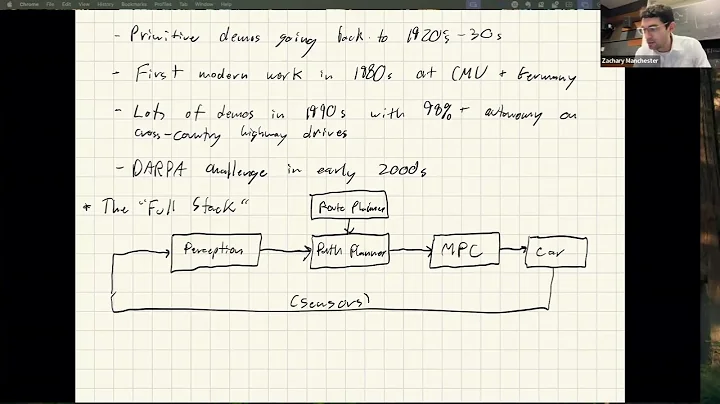 Chrome File Edit View History Bookmarks Profiles Tab Window Help
- Primitive demos going back to 1920's-30s
Zachary Manchester
- First modern work in 1980s at CMU + Germany
- Lots of demos in 1990s with 98%+ autonomy on
cross-country highway drives
- DARPA challenge in early 2000s
* The "Full Stack"
Route Planner
Perception
Path Planner
MPC
Car
(sensors)